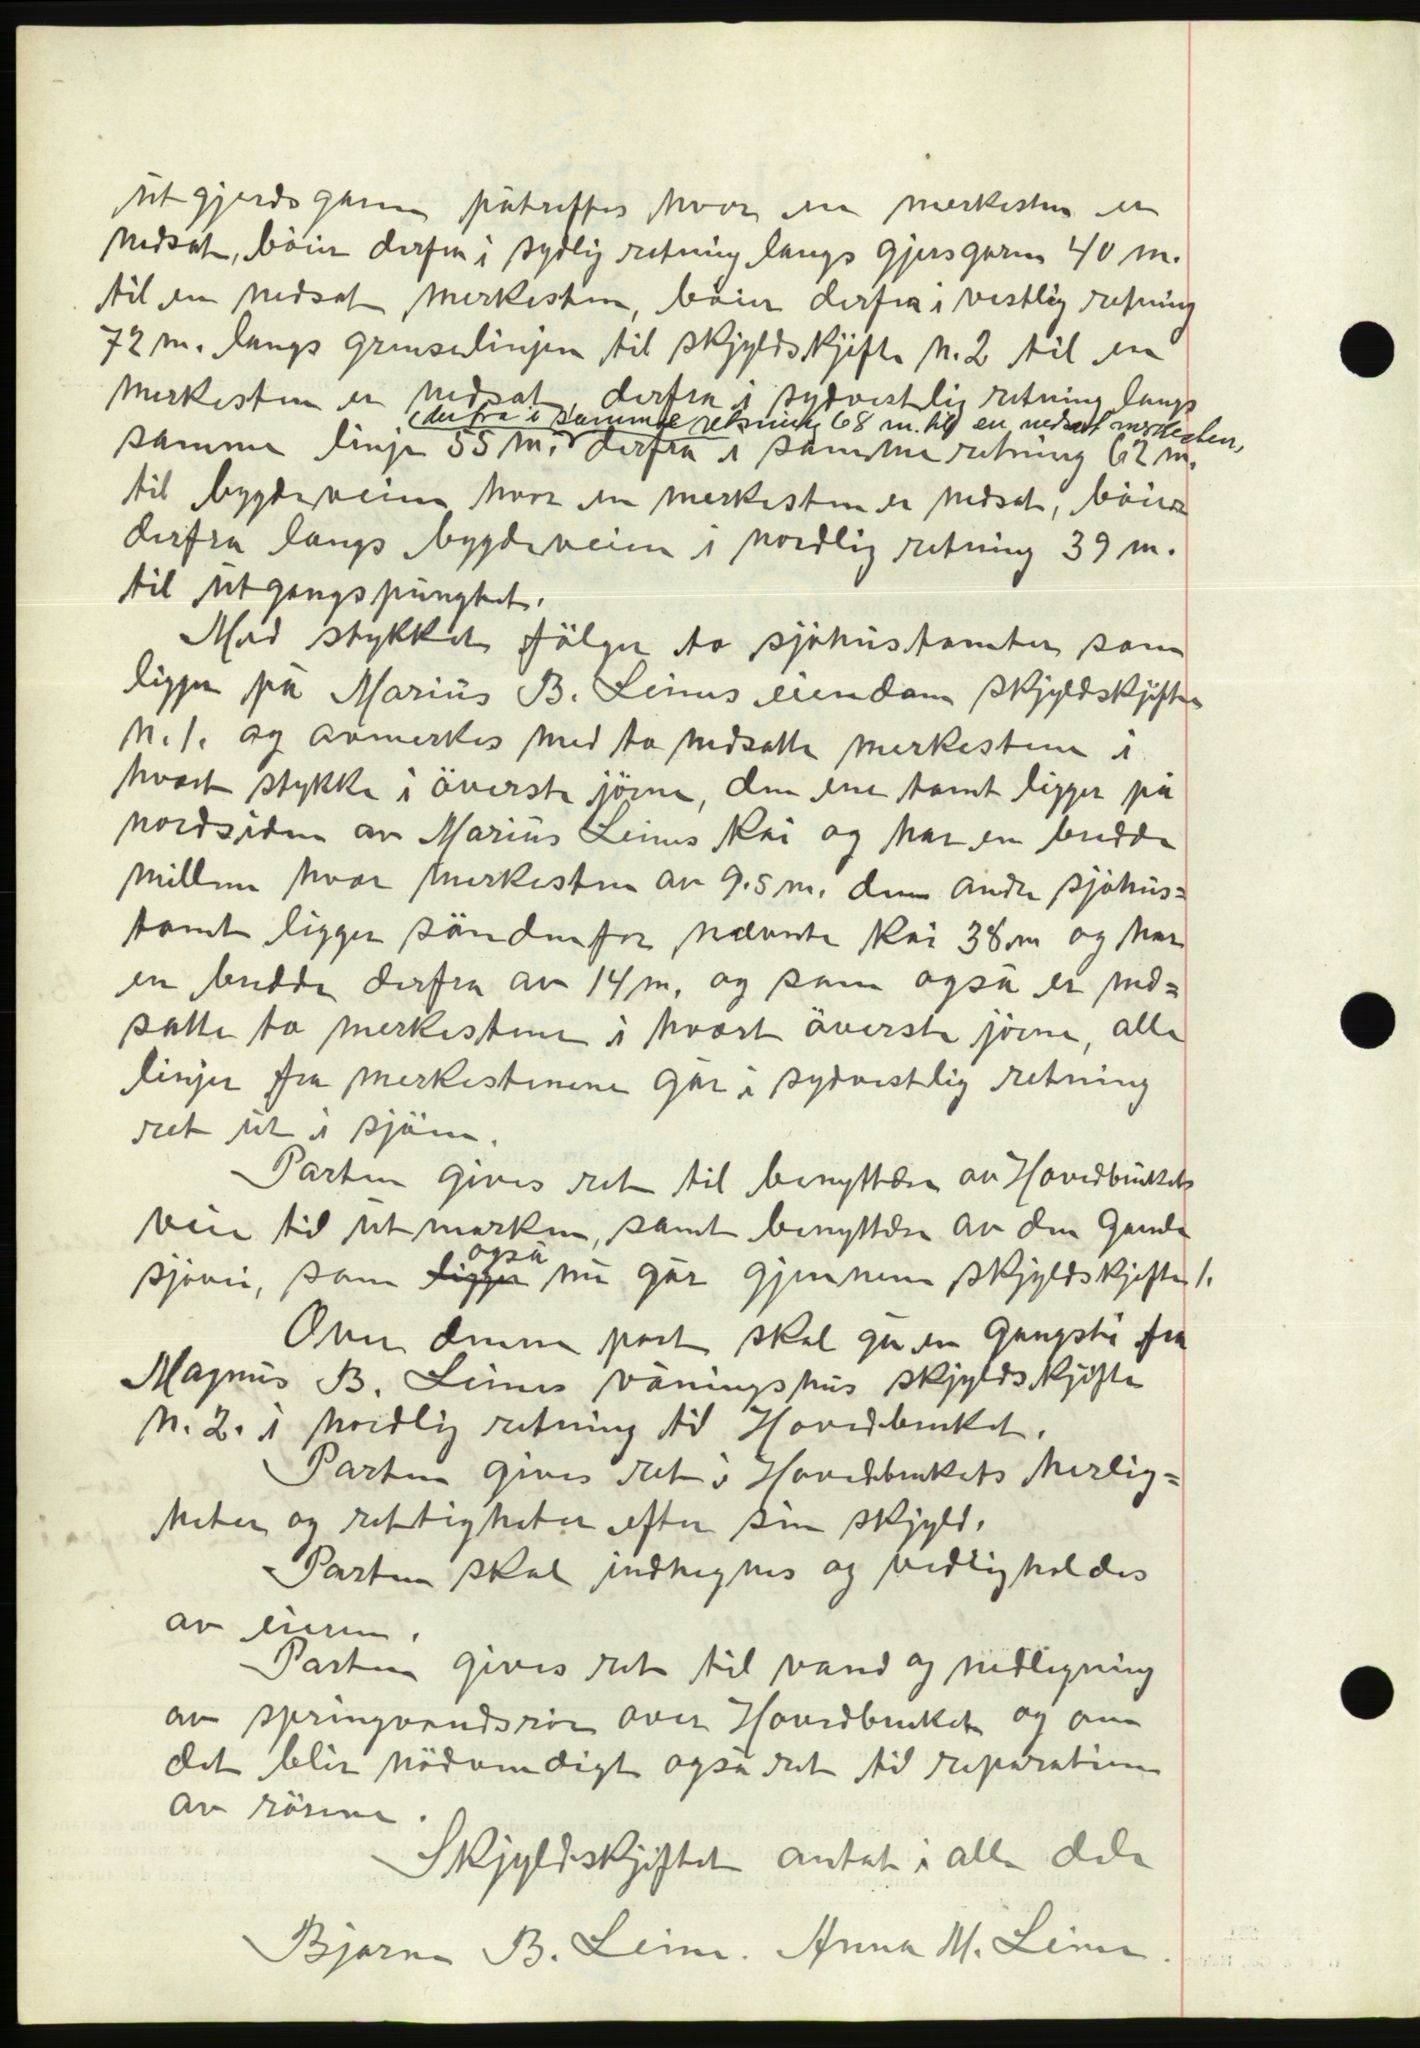 utgjerdsgaren påtreffes hvor en merkesten er
nedsat, böier derfra i sydlig retning langs gjersgaren 40 m.
til en nedsat merkesten, böier derfra i vestlig retning
72 m. langs grenselinjen til skjyldskjifte N. 2 til en
merkesten er nedsat, derfra i sydvestlig retning langs
(derfra i samme retning 68 m. til en nedsat merkesten,
samme linje 55 m. derfra i samme retning 62 m.
til bygdeveien hvor en merkesten er nedsat, böier
derfra langs bygdeveien i nordlig retning 39 m.
til utgangspungtet.
Med stykket fölger to sjöhustomter som
ligger på Marius B. Leines eiendom skjyldskjifte
N. 1. og avmerkes med to nedsatte merkestene i
hvert stykke i överste jörne, den ene tomt ligger på
nordsiden av Marius Leines kai og har en bredde
millem hver merkesten av 9.5 m. den andre sjöhus=
tomt ligger söndenfor nævnte kai 38 m og har
en bredde derfra av 14 m. og som også er ned=
satte to merkestene i hvert överste jörne, alle
linjer fra merkestenene går i sydvestlig retning
ret ut i sjöen.
Parten gives ret til benyttelse av Hovedbrukets
veie til utmarken, samt benyttelse av den gamle
også
sjövei, som ligger nu går gjennem skjyldskjifte 1.
Over denne part skal gå en gangsti fra
Magnus B. Leines våningshus skjyldskjifte
N. 2. i nordlig retning til Hovedbruket.
Parten gives ret i Hovedbrukets herlig=
heter og rettigheter efter sin skjyld.
Parten skal indhegnes og vedligholdes
av eieren.
Parten gives ret til vand og nedlegning
av springvandsrör over Hovedbruket og om
det blir nödvendigt også ret til reparation
av rörene.
Skjyldskjiftet antat i alle dele
Bjarne B. Leine. Anna M. Leine.